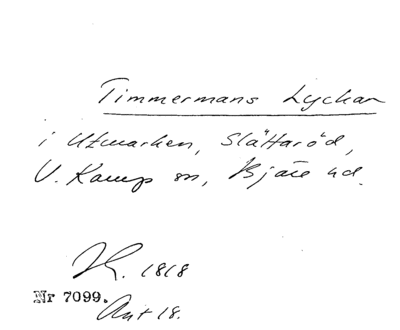 Timmermans Lyckan
i Utmarken, Slättaröd,
V. Karup sn, Bjäre hd.
1818
Nr 7099.
Akt 18.